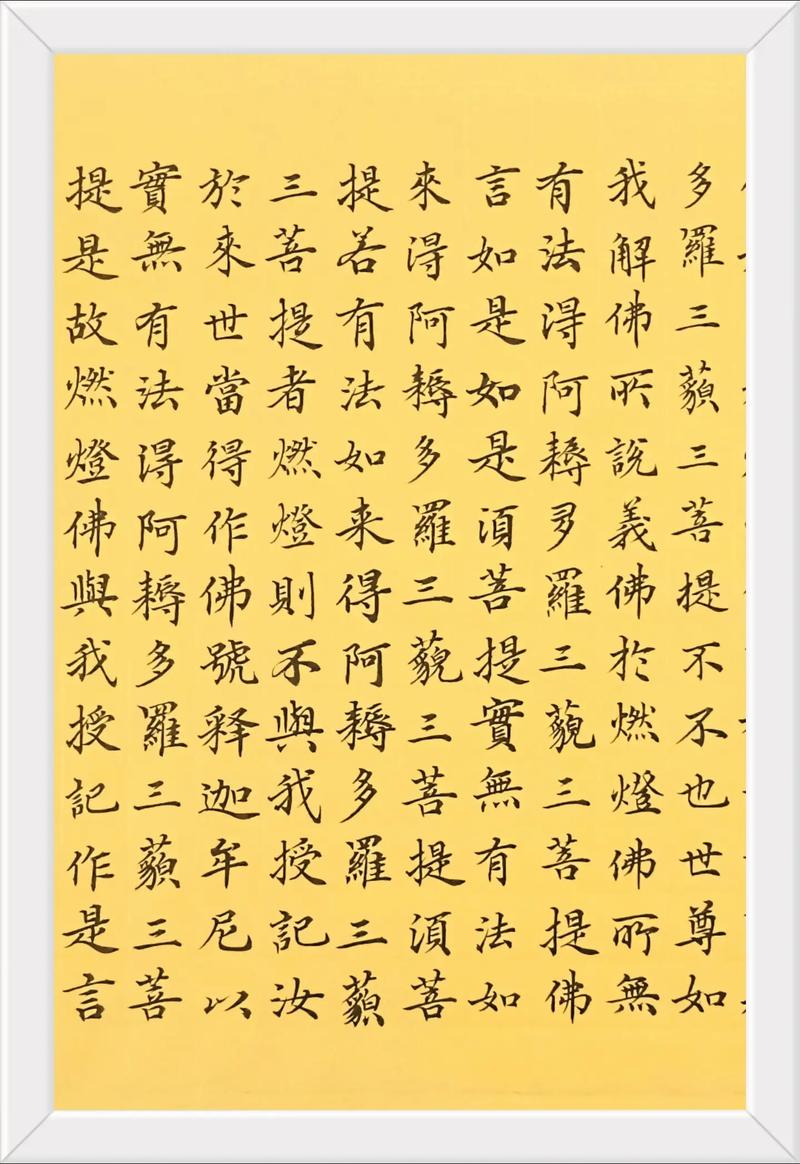 多羅三藐三菩提不不也世尊如
我解佛所說義佛於燃燈佛所無
有法得阿耨多羅三藐三菩提佛
言如是如是須菩提實無有法如
來得阿耨多羅三藐三菩提須菩
提若有法如来得阿耨多羅三藐
三菩提者燃燈則不與我授記汝
於來世當得作佛號释迦牟尼以
實無有法得阿耨多羅三藐三菩
提是故燃燈佛與我授記作是言